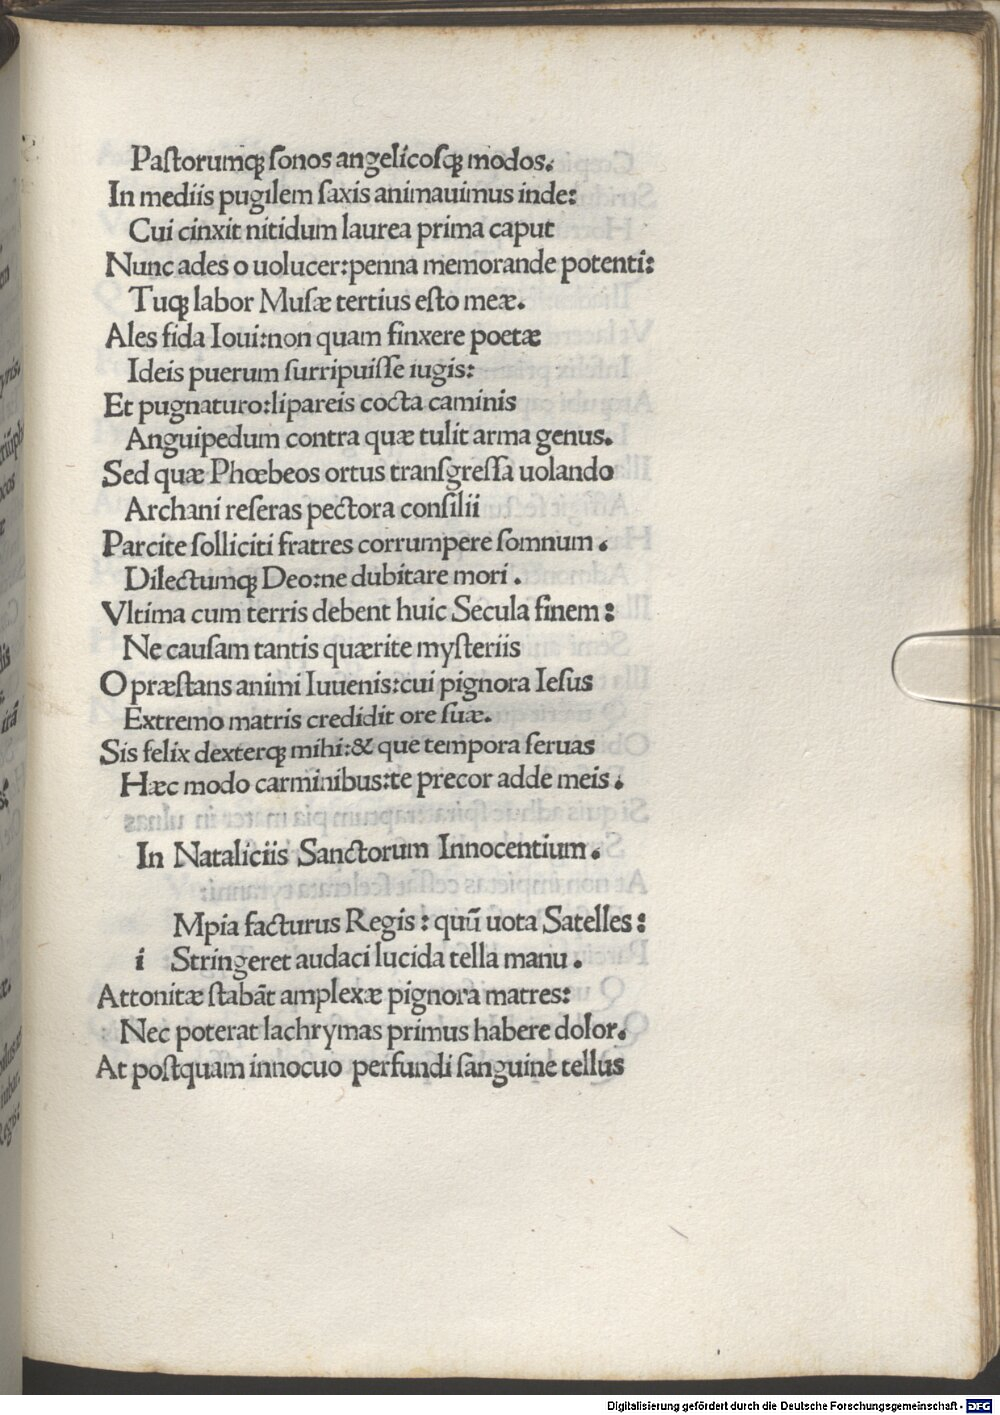 Paſtorumqꝫ ſonos angelicoſqꝫ modos.
In mediis pugilem ſaxis animauimus inde:
Cui cinxit nitidum laurea prima caput
Nunc ades o uolucer:penna memorande potenti:
Tuqꝫ labor Muſæ tertius eſto meæ.
Ales fida Ioui:non quam finxere poetæ
Ideis puerum ſurripuiſſe iugis:
Et pugnaturo:lipareis cocta caminis
Anguipedum contra quæ tulit arma genus.
Sed quæ Phœbeos ortus tranſgreſſa uolando
Archani reſeras pectora conſilii
Parcite ſolliciti fratres corrumpere ſomnum.
Dilectumqꝫ Deo:ne dubitare mori.
Vltima cum terris debent huic Secula finem:
Ne cauſam tantis quærite myſteriis
O præſtans animi Iuuenis:cui pignora Ieſus
Extremo matris credidit ore ſuæ.
Sis felix dexterqꝫ mihi:& que tempora ſeruas
Hæc modo carminibus:te precor adde meis.
In Nataliciis Sanctorum Innocentium.
Mpia facturus Regis: quū uota Satelles:
i Stringeret audaci lucida tella manu.
Attonitæ ſtabāt amplexæ pignora matres:
Nec poterat lachrymas primus habere dolor.
At poſtquam innocuo perfundi ſanguine tellus
Digitalisierung gefördert durch die Deutsche Forschungsgemeinschaft - DFG